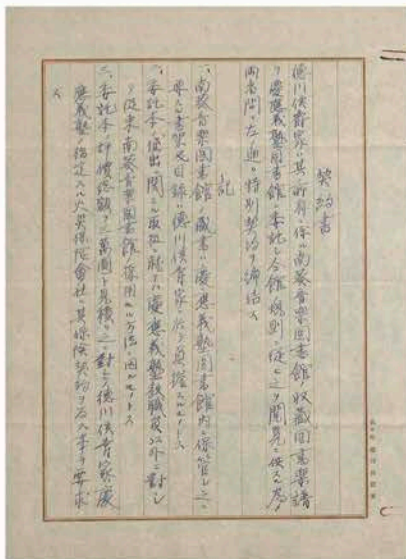 契約書
徳川侯爵家ハ其所有ニ係ル南葵音楽図書館ノ収蔵図書楽譜
ヲ慶應義塾図書館ニ委託シ仝館規則ニ従ヒ之ヲ閲覧ニ供スル為メ
両者間ニ左ノ通リ特別契約ヲ締結ス
記
一、南葵音楽図書館ノ蔵書ハ慶應義塾図書館内ニ保管シ之ニ
要スル書架及目録ハ徳川侯爵家ニ於テ負擔スルモノトス
二、委託本ノ貸出ニ関スル取扱ニ就テハ慶應義塾教職員以外ニ対シ
テ従来南葵音楽図書館ノ採用セル方法ニ因ルモノトス
三、委託本ノ評價総額ヲ三萬圓ト見積リ之ニ對シテ徳川侯爵家ハ慶
應義塾ノ指定スル火災保険會社ト其保険契約ヲ為ス事ヲ要求
ス